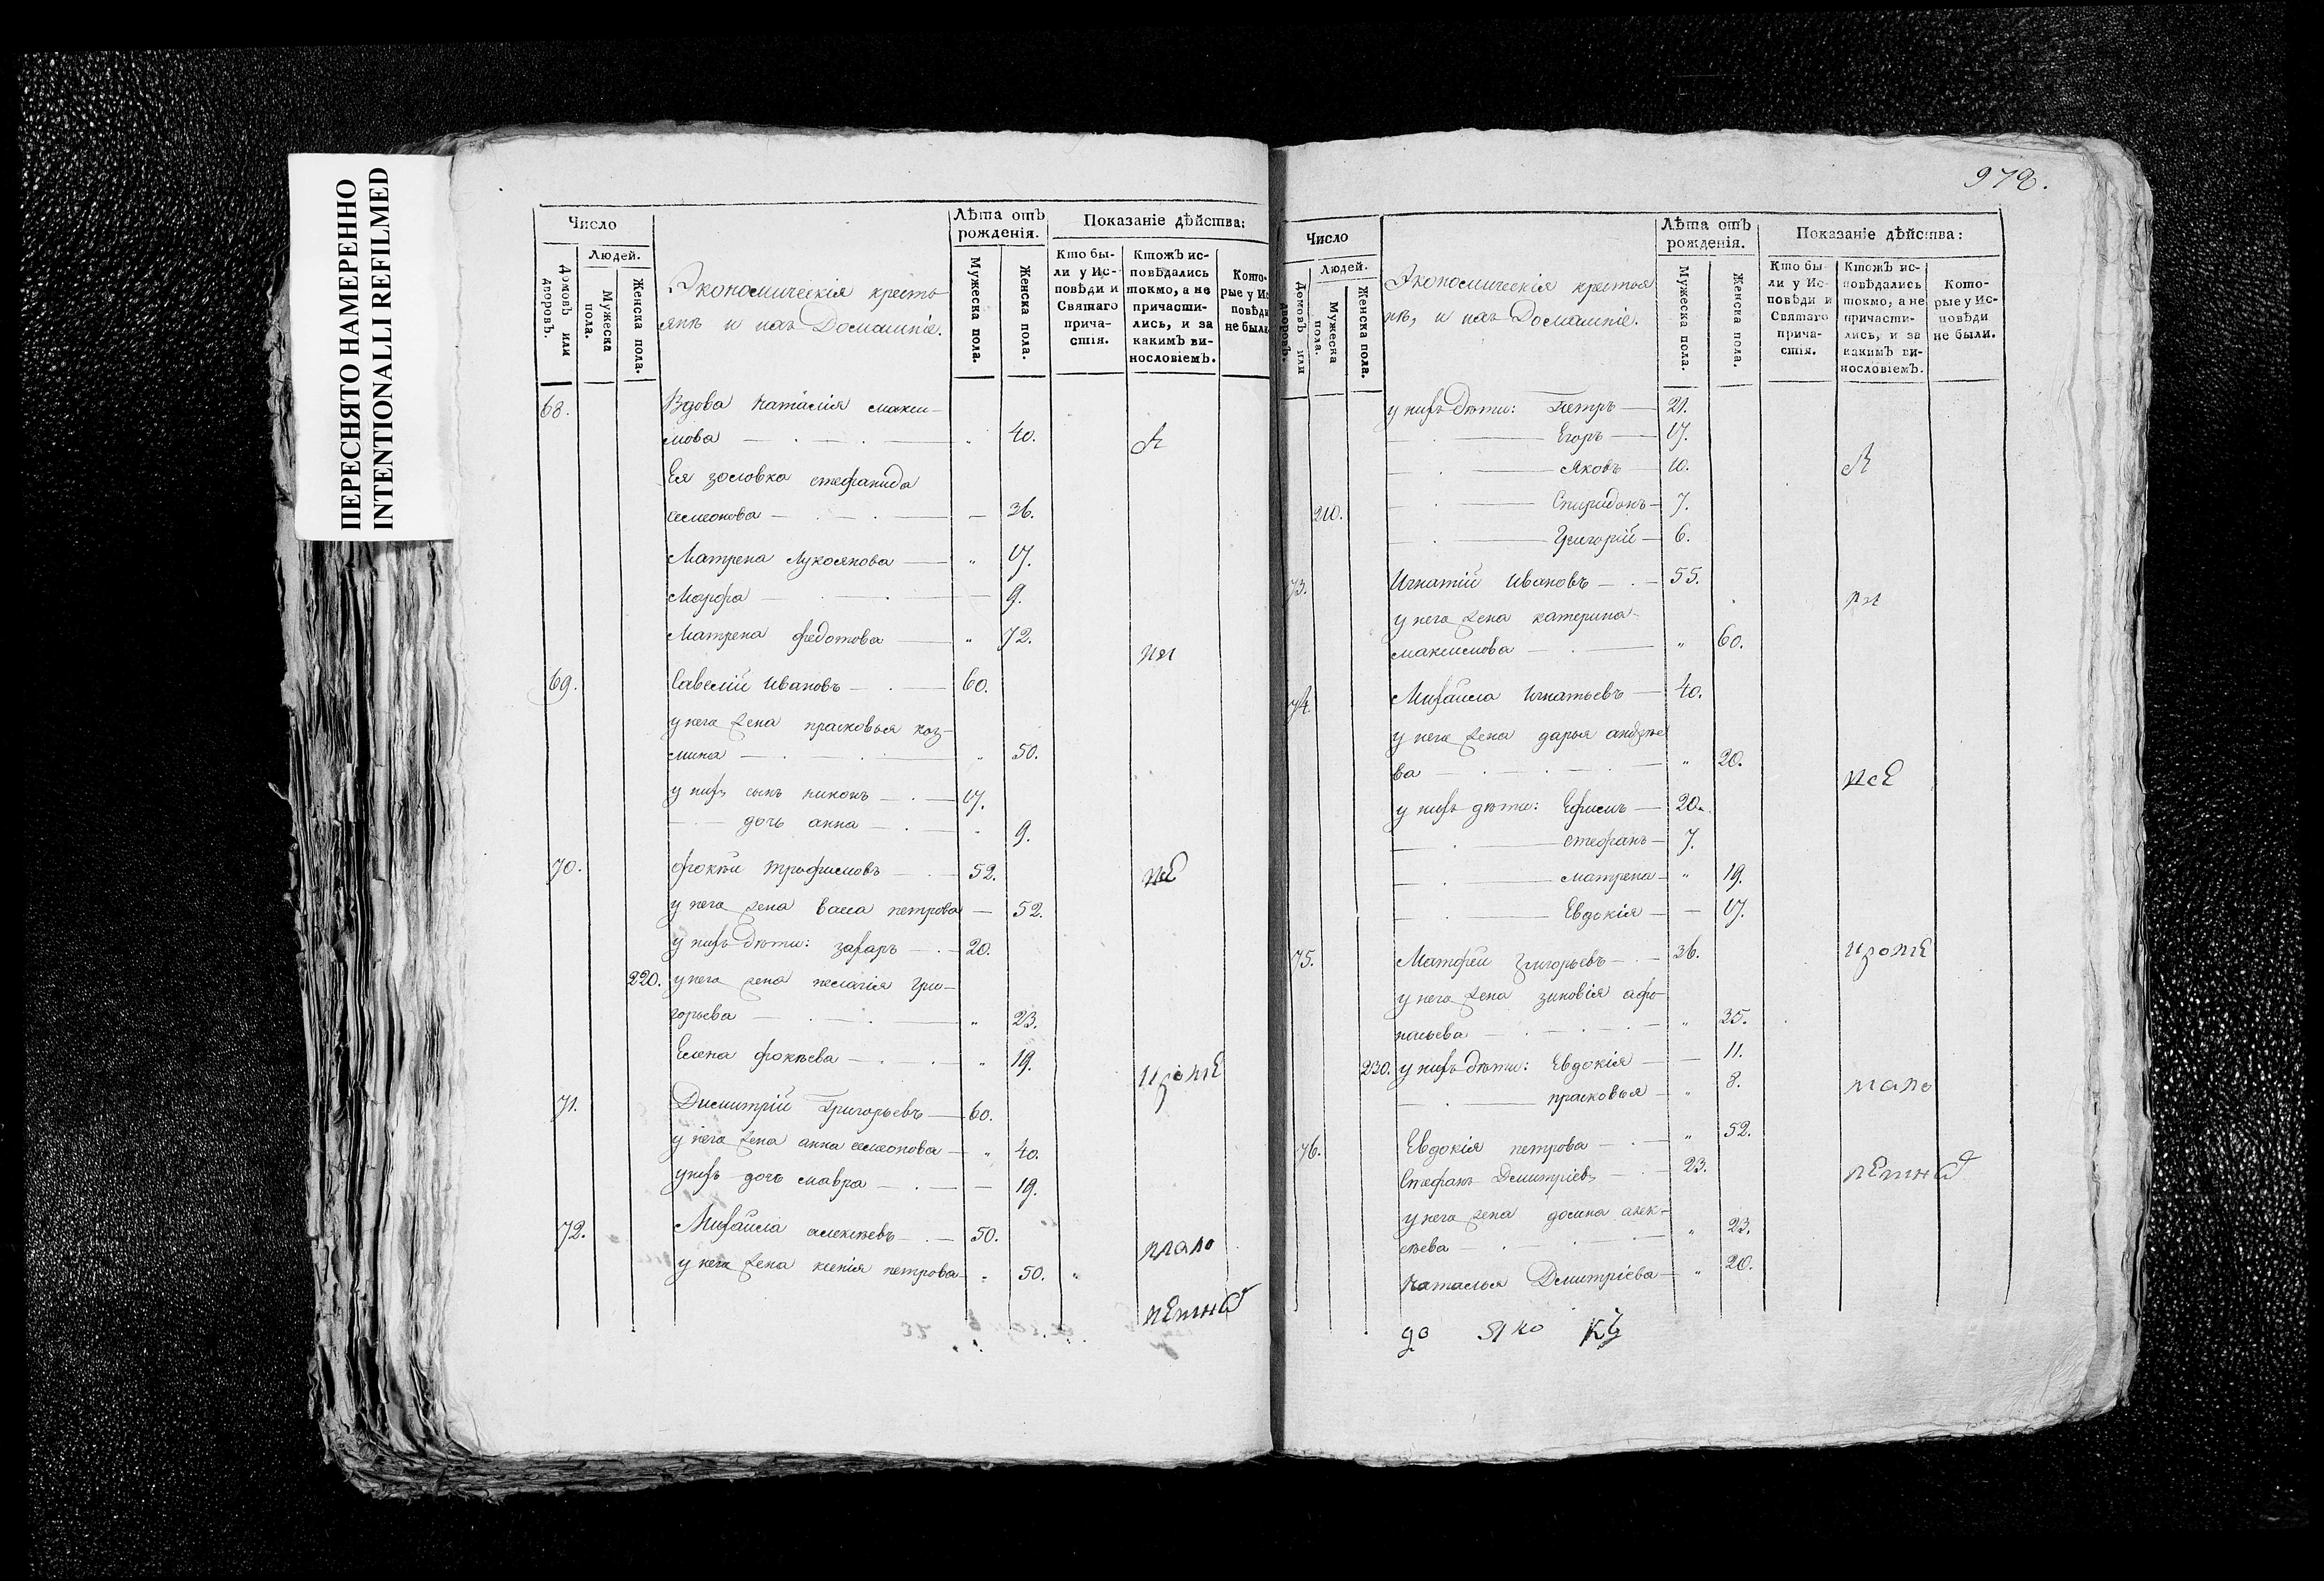 ПЕРЕСНЯТО НАМЕРЕННО
INTENTIONALLI REFILMED
Число
Людей.
Домовъ или дворовъ.
Мужеска пола.
Женска пола.
Экономическія кресть
янѣ и ихъ Домашніе.
Лѣта отъ
рожденія.
Мужеска пола.
Женска пола.
Показаніе дѣйства:
Кто бы-
ли у Ис-
повѣди и
Святаго
прича-
стія.
Ктожъ ис-
повѣдались
токмо, а не
причасти-
лись, и за
какимъ ви-
нословіемъ.
Кото-
рые у Ис
повѣди
не были
68. Вдова наталія макси-
мова — „ 40.
Ея золовка стефанида
семеонова — 36.
Матрена Лукоянова — „ 17.
Марфа — 9.
Матрена федотова — „ 72.
69. Савелій Ивановъ — 60.
у него жена прасковья коз-
мина — „ 50.
у нихъ сынъ никонъ — 17.
— дочь анна — „ 9.
70. фокѣй трофимовъ — 52.
у него жена васса петрова — 52.
у нихъ дѣти: захаръ — 20.
220. у него жена пелагія гри-
горьева — „ 23.
Елена фокѣева — „ 19.
71. Димитрій Григорьевъ — 60.
у него жена анна семеонова — „ 40.
у нихъ дочь мавра — 19.
72. Михайла алексѣевъ — 50.
у него жена ксенія петрова — „ 50.
978.
Число
Людей.
Домовъ или дворовъ.
Мужеска пола.
Женска пола.
Экономическія крестья
нѣ, и ихъ Домашніе.
Лѣта отъ
рожденія.
Мужеска пола.
Женска пола.
Показаніе дѣйства:
Кто бы-
ли у Ис-
повѣди и
Святаго
прича-
стія.
Ктожъ ис-
повѣдались
токмо, а не
причасти-
лись, и за
какимъ ви-
нословіемъ.
Кото-
рые у Ис-
повѣди
не были.
у нихъ дѣти: Петръ — 21.
— Егоръ — 17.
— Яковъ — 10.
210. — Спиридонъ — 7.
— Григорій — 6.
73. Игнатій Ивановъ — 55.
у него жена катерина
максимова — „ 60.
74. Михайла Игнатьевъ — 40.
у него жена дарья андрѣе
ва — „ 20.
у нихъ дѣти: Ефимъ — 20.
— стефанъ — 7.
— матрена — „ 19.
— Евдокія — 17.
75. Матфей Григорьевъ — 36.
у него жена зиновія афо-
насьева — „ 35.
230. у нихъ дѣти: Евдокія — 11.
— прасковья — „ 8.
76. Евдокія петрова — „ 52.
Стефанъ Димитріевъ — 23.
у него жена домна алек-
сѣева — „ 23.
Наталья Димитріева — „ 20.